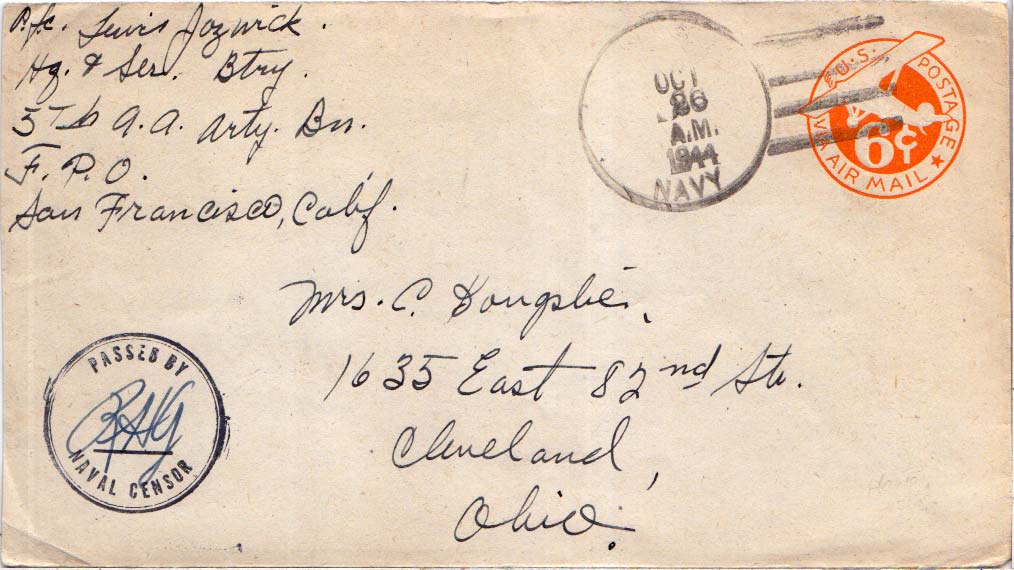 P.f.c. Lewis Jozwick.
Hq. & Ser. Btry.
5th A.A. Arty. Bn.
F.P.O.
San Francisco, Calif.
OCT
26
A.M.
1944
NAVY
U.S. POSTAGE
6¢
VIA AIR MAIL
Mrs. C.
1635 East 82nd Str.
Cleveland,
Ohio.
PASSED BY
NAVAL CENSOR